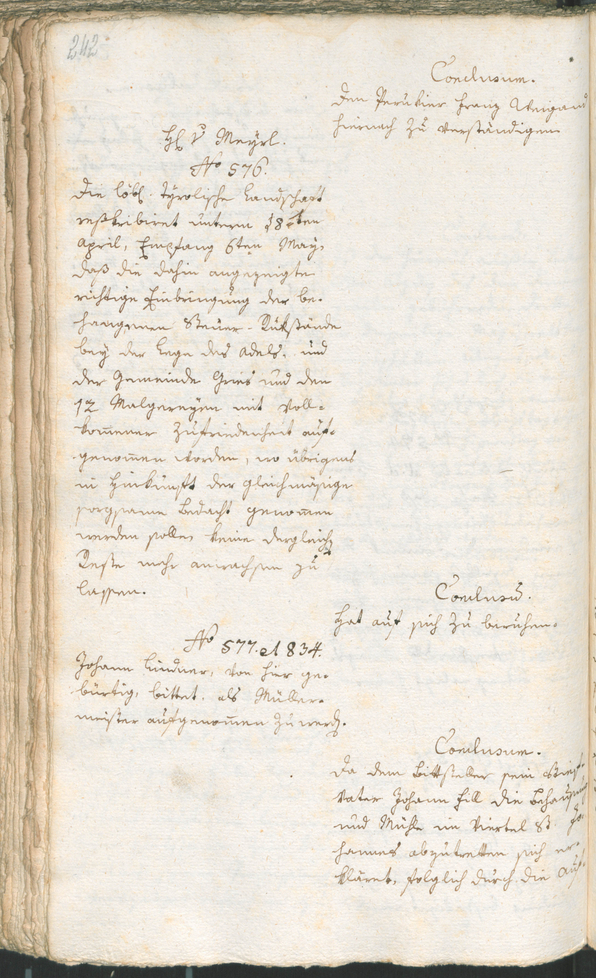 242
Conclusum.
Den Perukier Franz Weigand
hiernach zu verständigen
H: v. Meyrl.
No 576.
Die löbl. Tyrolische Landschaft
reskribiret unterm 18ten
April, Empfang 6ten May,
daß die dahin angezeigte
richtige Einbringung der be-
hangenen Steuer-Rükstände
bey der Lege des Adels, und
der Gemeinde Gries und den
12 Malgereyen mit voll-
kommener Zufriedenheit auf-
genommen worden, wo übrigens
in Hinkunft der gleichmäsige
sorgsame Bedacht genommen
werden solle, keine dergleich
Reste mehr anwachsen zu
lassen.
Conclusũ.
Hat auf sich zu beruhen.
No 577. et 834.
Johann Lindner, von hier ge-
bürtig, bittet, als Müller-
meister aufgenommen zu werd.
Conclusum.
Da dem Bittsteller sein Stief-
Vater Johann Fill die Behausung
und Mühle im Viertel St. Jo-
hannes abzutretten sich er-
kläret, folglich durch die Auf-